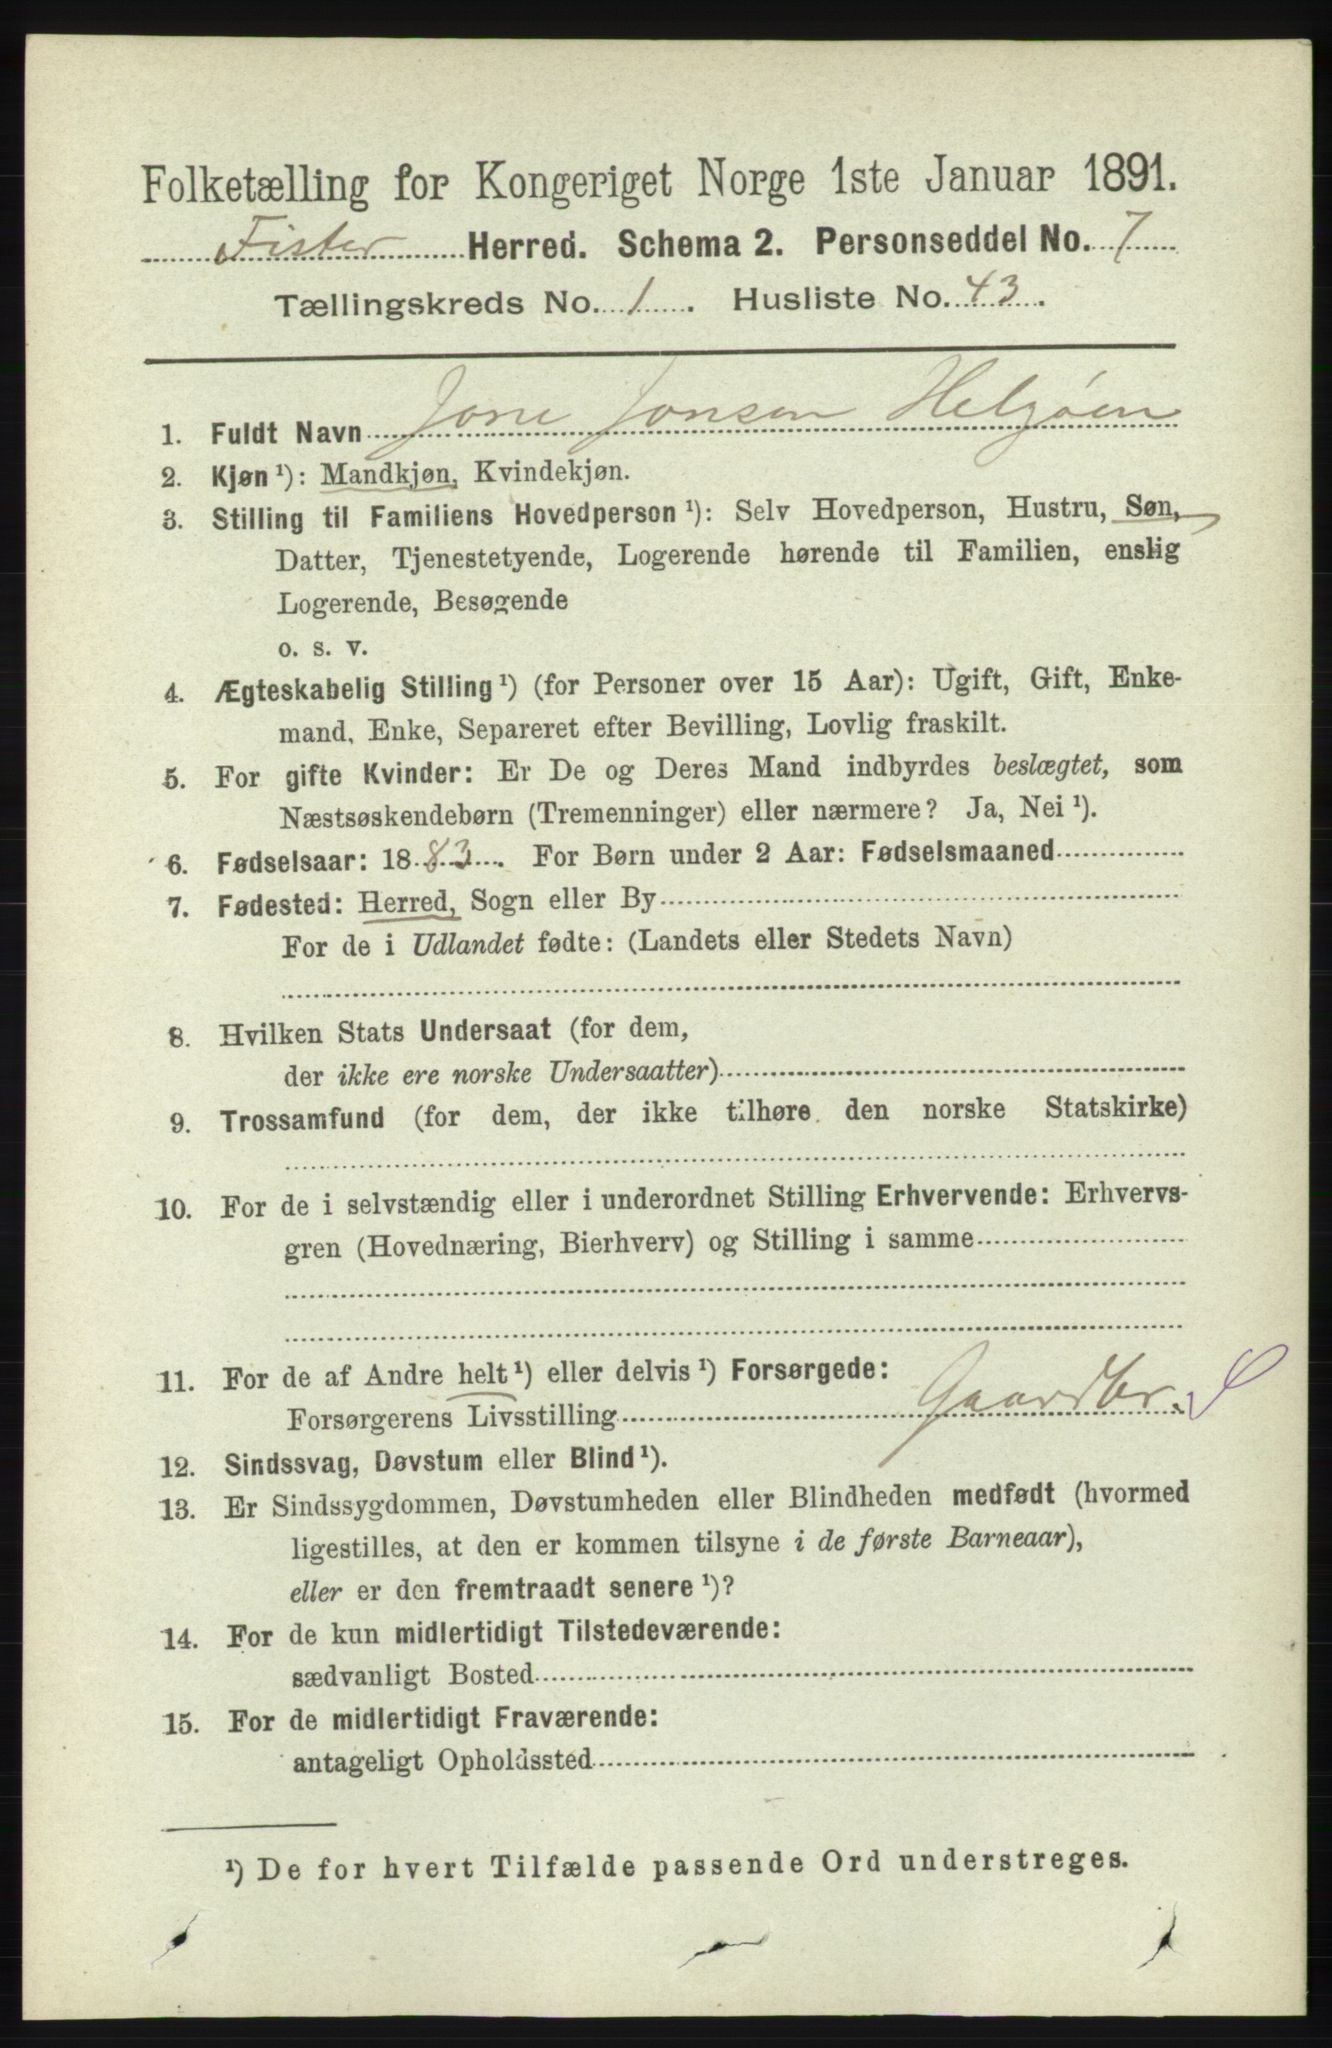 Folketælling for Kongeriget Norge 1ste Januar 1891.
Fister Herred. Schema 2. Personseddel No. 7
Tællingskreds No. 1. Husliste No. 43.
1. Fuldt Navn Jone Jonsen Helgøen
2. Kjøn¹): Mandkjøn, Kvindekjøn.
3. Stilling til Familiens Hovedperson¹): Selv Hovedperson, Hustru, Søn,
Datter, Tjenestetyende, Logerende hørende til Familien, enslig
Logerende, Besøgende
o. s. v.
4. Ægteskabelig Stilling¹) (for Personer over 15 Aar): Ugift, Gift, Enke-
mand, Enke, Separeret efter Bevilling, Lovlig fraskilt.
5. For gifte Kvinder: Er De og Deres Mand indbyrdes beslægtet, som
Næstsøskendebørn (Tremenninger) eller nærmere? Ja, Nei¹).
6. Fødselsaar: 1883. For Børn under 2 Aar: Fødselsmaaned
7. Fødested: Herred, Sogn eller By
For de i Udlandet fødte: (Landets eller Stedets Navn)
8. Hvilken Stats Undersaat (for dem,
der ikke ere norske Undersaatter)
9. Trossamfund (for dem, der ikke tilhøre den norske Statskirke)
10. For de i selvstændig eller i underordnet Stilling Erhvervende: Erhvervs-
gren (Hovednæring, Bierhverv) og Stilling i samme
11. For de af Andre helt¹) eller delvis¹) Forsørgede:
Forsørgerens Livsstilling Gaardbr.
12. Sindssvag, Døvstum eller Blind¹).
13. Er Sindssygdommen, Døvstumheden eller Blindheden medfødt (hvormed
ligestilles, at den er kommen tilsyne i de første Barneaar),
eller er den fremtraadt senere¹)?
14. For de kun midlertidigt Tilstedeværende:
sædvanligt Bosted
15. For de midlertidigt Fraværende:
antageligt Opholdssted
¹) De for hvert Tilfælde passende Ord understreges.